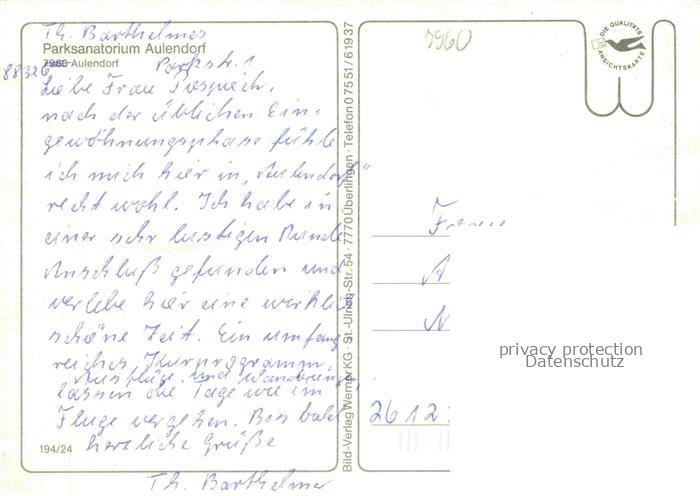 Th. Barthelmes
Parksanatorium Aulendorf
88326 7960 Aulendorf Parkstr. 1
Liebe Frau
nach der üblichen Ein=
gewöhnungsphase fühle
ich mich hier in „Aulendorf“
recht wohl. Ich habe in
einer sehr lustigen Runde
Anschluß gefunden und
verlebe hier eine wirklich
schöne Zeit. Ein umfang
reiches Kurprogramm,
Ausflüge und Wanderungen,
lassen die Tage wie im
Fluge vergehen. Bis bald
herzliche Grüße
Th. Barthelmes
194/24
Bild-Verlag Werner KG · St.-Ulrich-Str. 54 · 7770 Überlingen · Telefon 0 75 51 / 6 19 37
7960
DIE QUALITÄTS
ANSICHTSKARTE
Frau
A
N
2612
privacy protection
Datenschutz